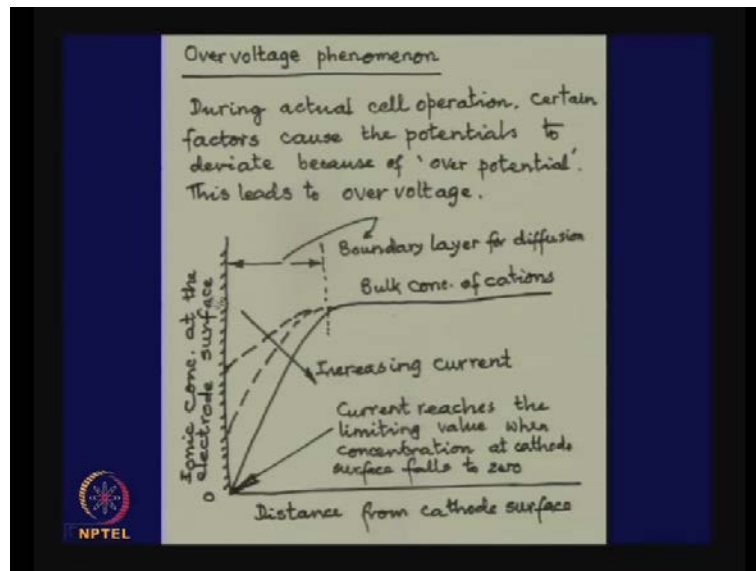 Over voltage phenomenon
During actual cell operation, certain
factors cause the potentials to
deviate because of 'over potential'.
This leads to over voltage.
Boundary layer for diffusion
Bulk conc. of cations
Ionic conc. at the
electrode surface
Increasing current
Current reaches the
limiting value when
concentration at cathode
surface falls to zero
0
Distance from cathode surface
NPTEL